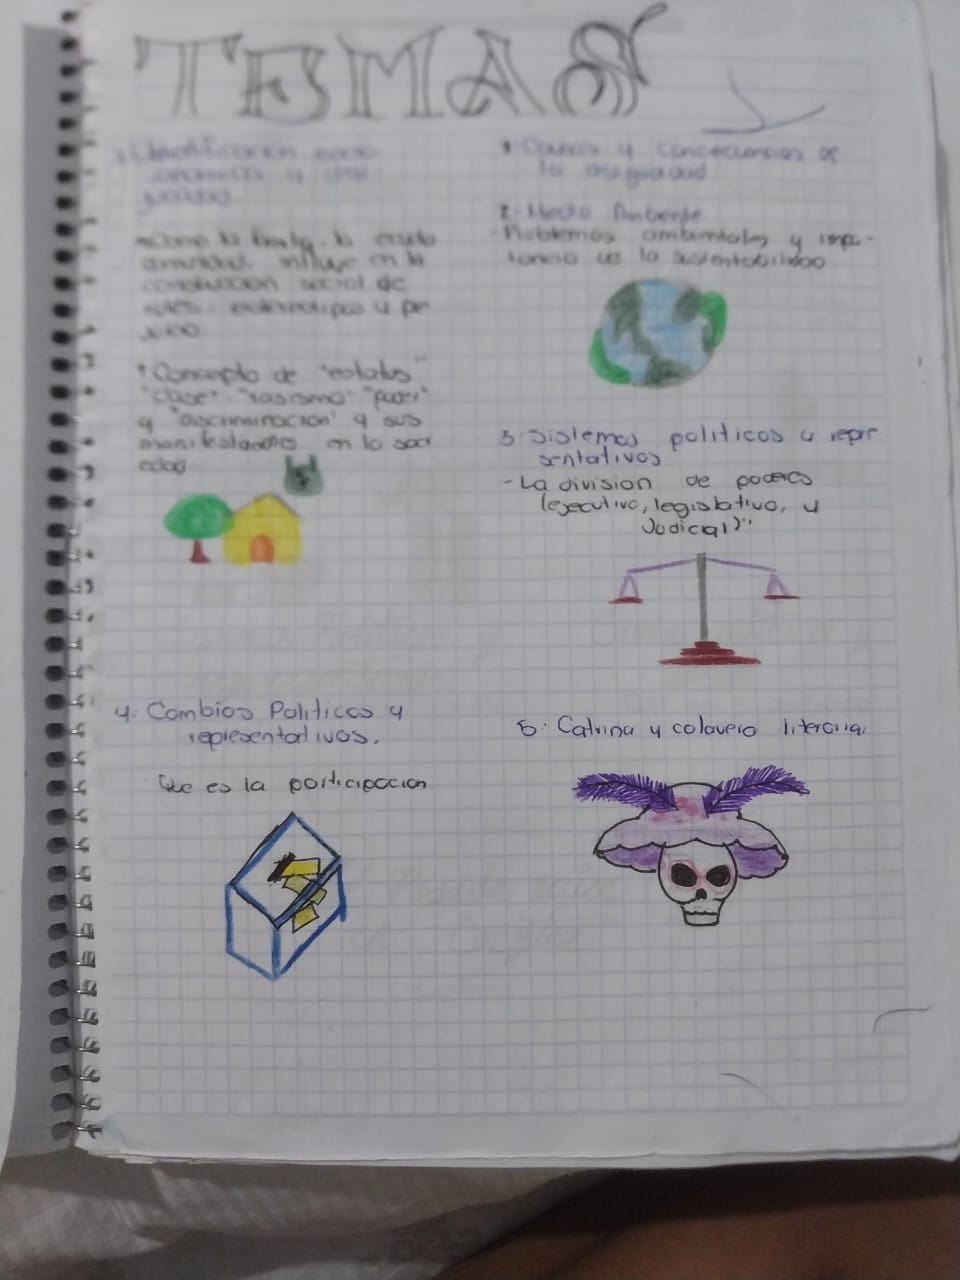 TEMAS
1. Identificacion socio
economica y desi
gualdad
*Como la familia, la escuela
comunidad, influye en la
construccion social de
roles, estereotipos y per
juicio
*Concepto de "estatus"
"clase" "rasismo" "poder"
y "discriminacion" y sus
en la soci
edad
$
y concecuencias de
la
2. Medio Ambente
- Problemas ambientales y impo-
tancia de la sustentabilidad
3. Sistemas politicos y repre
sentativos
- La division de poderes
(ejecutivo, legislativo, y
Judicial)"
4. Cambios Politicos y
representativos.
Que es la participacion
5. Catrina y calavera literaria